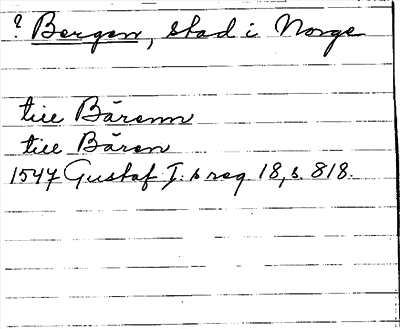 ? Bergen, stad i Norge
till Bärenn
till Bären
1547 Gustaf I:s reg 18, s. 818.